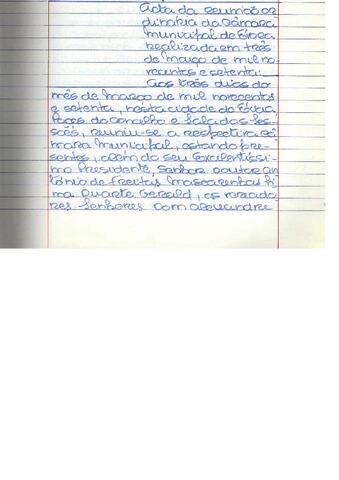 Acta da reunião or
dinária da Câmara
Municipal de Évora
realizada em três
de março de mil no-
vecentos e setenta:
Aos três dias do
mês de março de mil novecentos
e setenta, nesta cidade de Évora
Paços do Concelho e Sala das Ses-
sões, reuniu-se a respectiva Câ
mara Municipal, estando pre-
sentes, além do seu Excelentíssi-
mo Presidente, Senhor Doutor An
tónio de Freitas Mascarenhas Fi
na Duarte Gerald, os vereado
res Senhores Dom Alexandre